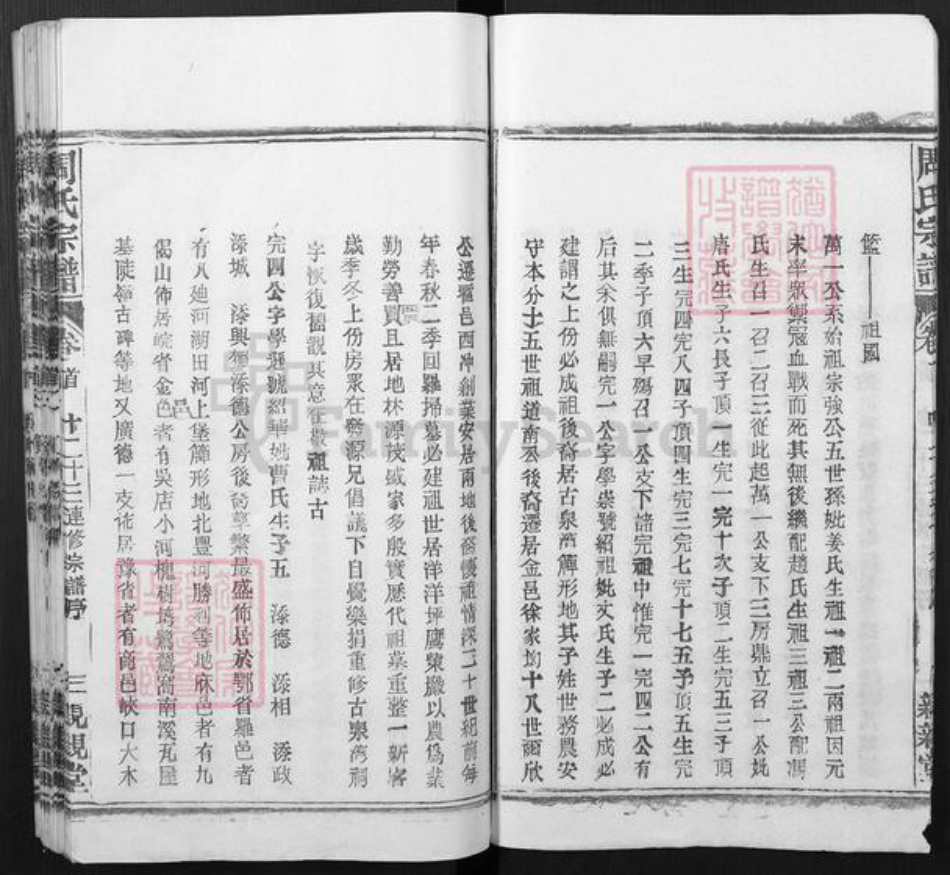 周氏宗譜
籃——祖國
萬一公系始祖宗強公五世孫妣姜氏生祖一祖二兩祖因元
末半眾禦寇血戰而死其無後繼配趙氏生祖三祖三公配馮
氏生召一召二召三從此起萬一公支下三房鼎立召一公妣
唐氏生子六長子頂一生完一完十次子頂二生完五三子頂
三生完四完八四子頂四生完三完七完十七五子頂五生完
二季子頂六早殤召一公支下諸完祖中惟完一完四二公有
后其余俱無嗣完一公字學崇號紹祖妣文氏生子二必成必
建謂之上份必成祖後裔居古泉灣簰形地其子姓世務農安
守本分十五世祖道南公後裔遷居金邑徐家均十八世爾欣
公遷霍邑西冲創業安居兩地後裔懷祖情深二十世紀前每
年春秋二季回羅掃墓必建祖世居洋洋坪鷹柴巖以農為業
勤勞善賈且居地林源茂盛家多殷實歷代祖業重整一新客
歲季冬上份房眾在榮源兄倡議下自覺樂捐重修古泉灣祠
宇恢復舊觀其意在敬祖誌古
完四公字學遜號紹華妣曹氏生子五 添德 添相 添政
添城 添興獨添德公房後裔繁繁最盛佈居於鄂省羅邑者
有八廸河潮田河上堡簰形地北豐河勝利等地麻邑者有九
偈山佈居皖省金邑者有吳店小河槐樹塆鷺鷥窩南溪瓦屋
基陡嶺古碑等地又廣德一支徙居豫省者有商邑峽口大木
周氏宗譜 卷首 廿二廿三連修宗譜序 三 親親堂
FamilySearch